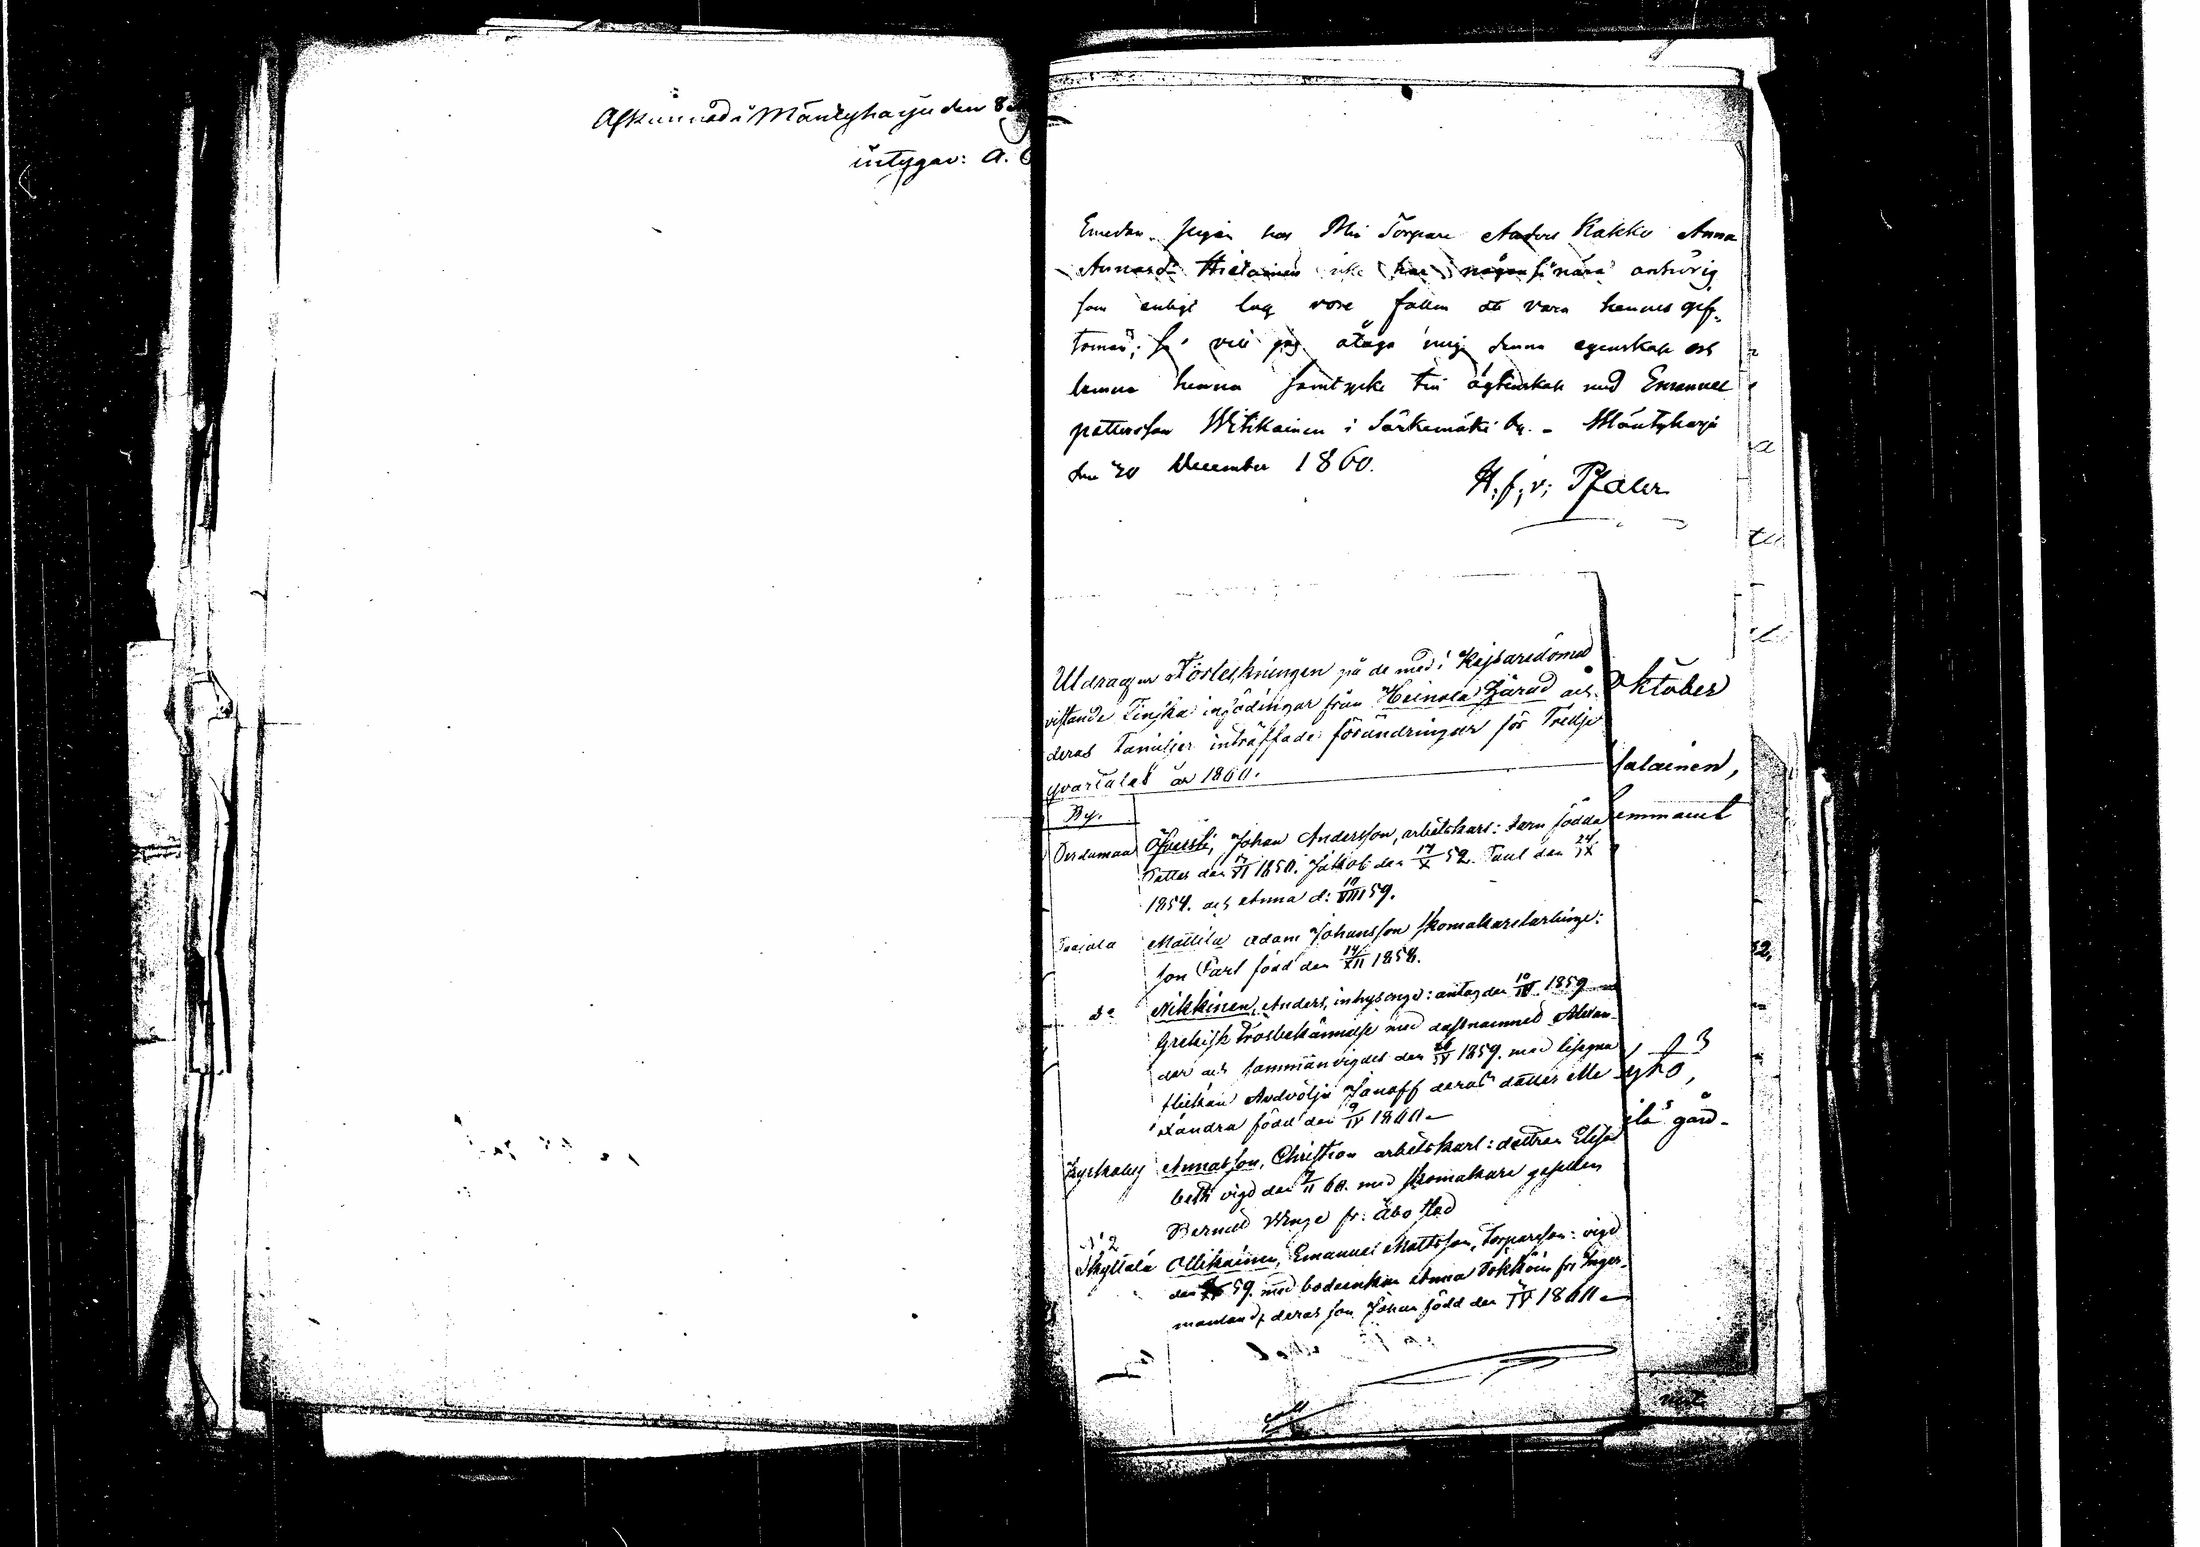 Afkunnad i Mäntyharju den 8
intygar: A.
Emedan pigan hos Min Torpare Anders Kakko Anna
Annasd:r Hietainen icke har någon så nära anhörig
som enligt lag vore fallen att vara hennes gif-
toman; så vill jag åtaga mig denna egenskap och
lemna henne samtycke till ägtenskap med Emanuel
pettersson Witikainen i Särkemäki by. - Mäntyharju
den 20 December 1860.
H. f. v; Pfaler
Utdrag ur Förteckningen på de med i Kejsaredömet
vistande Finska infödingar från Heinola Härad och
deras Familjer inträffade förändringar för Tredje
qvartalet år 1860.
Oktober
salainen,
emmanet
By.
Johan Andersson, arbetskarl: barn födde
Petter den 17/VI 1850. Jakob den 17/X 52. Paul den 24/IX
1854. och Anna d: 10/VIII 59.
Mattila Adam Johansson skomakarelärlinge:
son Carl född den 14/XII 1858.
D:o Nikkinen, Anders, inhysinge: antog den 10/IV 1859
Grekisk trosbekännelse med dopnamnet Alexan-
der och sammanvigdes den 26/IV 1859. med
flickan Avdotja Janoff deras dotter
xandra född den 9/IV 1860
ila gård-
Kyrkoby Annasson, Christian arbetskarl: dottren Elisa
beth vigd den 7/II 60. med skomakare gesellen
Bernard Wenge fr: Åbo stad
N:o 2
Skyttälä Ollikainen, Emanuel Mattsson, Torpareson: vigd
den 59. med Anna fr: Inger-
manland, deras son Johan född den IV 1860